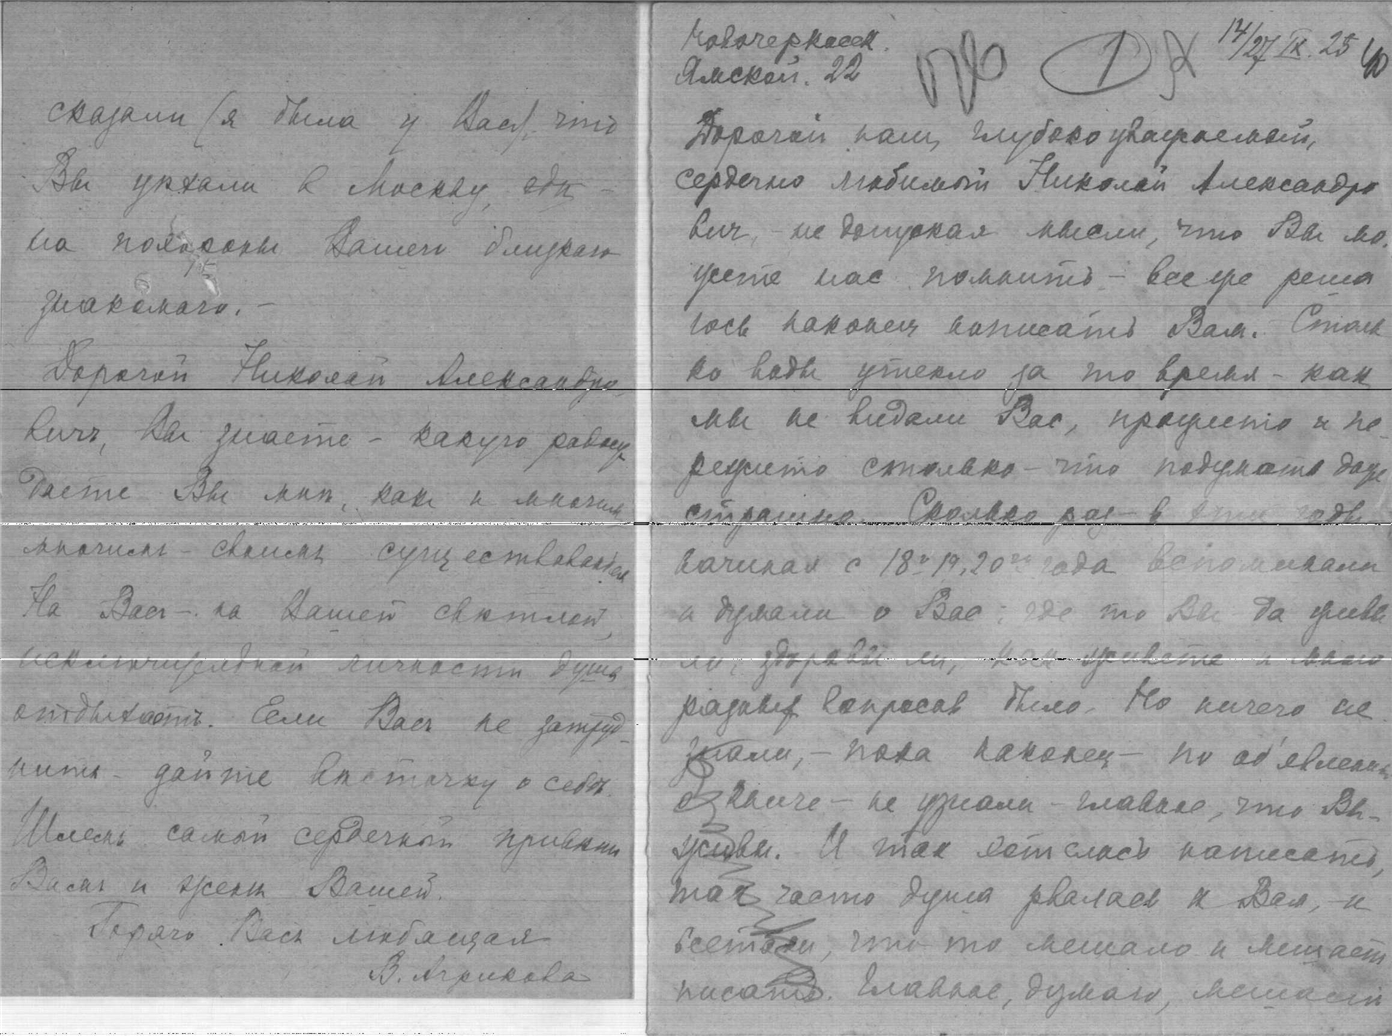 сказали (я была у Васъ), что
Вы уѣхали в Москву,
на похороны Вашего близкаго
знакомаго. –
Дорогой Николай Александро
вичъ, Вы знаете – какую радость
даете Вы мнѣ, как и многим
многимъ – своимъ существованіем
На Васъ – на Вашей свѣтлой,
исключительной личности душа
отдыхаетъ. Если Васъ не затруд-
нитъ – дайте вѣсточку о себѣ.
Шлемъ самый сердечный привѣтъ
Вамъ и женѣ Вашей.
Горячо Васъ любящая
В. Агрикова
Новочеркасск.
Ямской. 22
1
14/27 IX. 25
Дорогой наш, глубокоуважаемый,
сердечно любимый Николай Александро
вич, – не допуская мысли, что Вы мо
жете нас помнить – все же реши
лось наконец написать Вам. Столь
ко воды утекло за то время – как
мы не видали Вас, прожито и пе-
режито столько – что подумать даже
страшно. Сколько раз – в эти годы
начиная с 18го 19, 20го года вспоминали
и думали о Вас: где то Вы да живы
ли, здоровы ли, как живете и много
разных вопросов было. Но ничего не
знали, – пока наконец – по об'явлению
о – не узнали – главное, что Вы –
живы. И так хотелось написать,
так часто душа рвалась к Вам, – и
все-таки, что-то мешало и мешает
писать. Главное, думаю, мешает